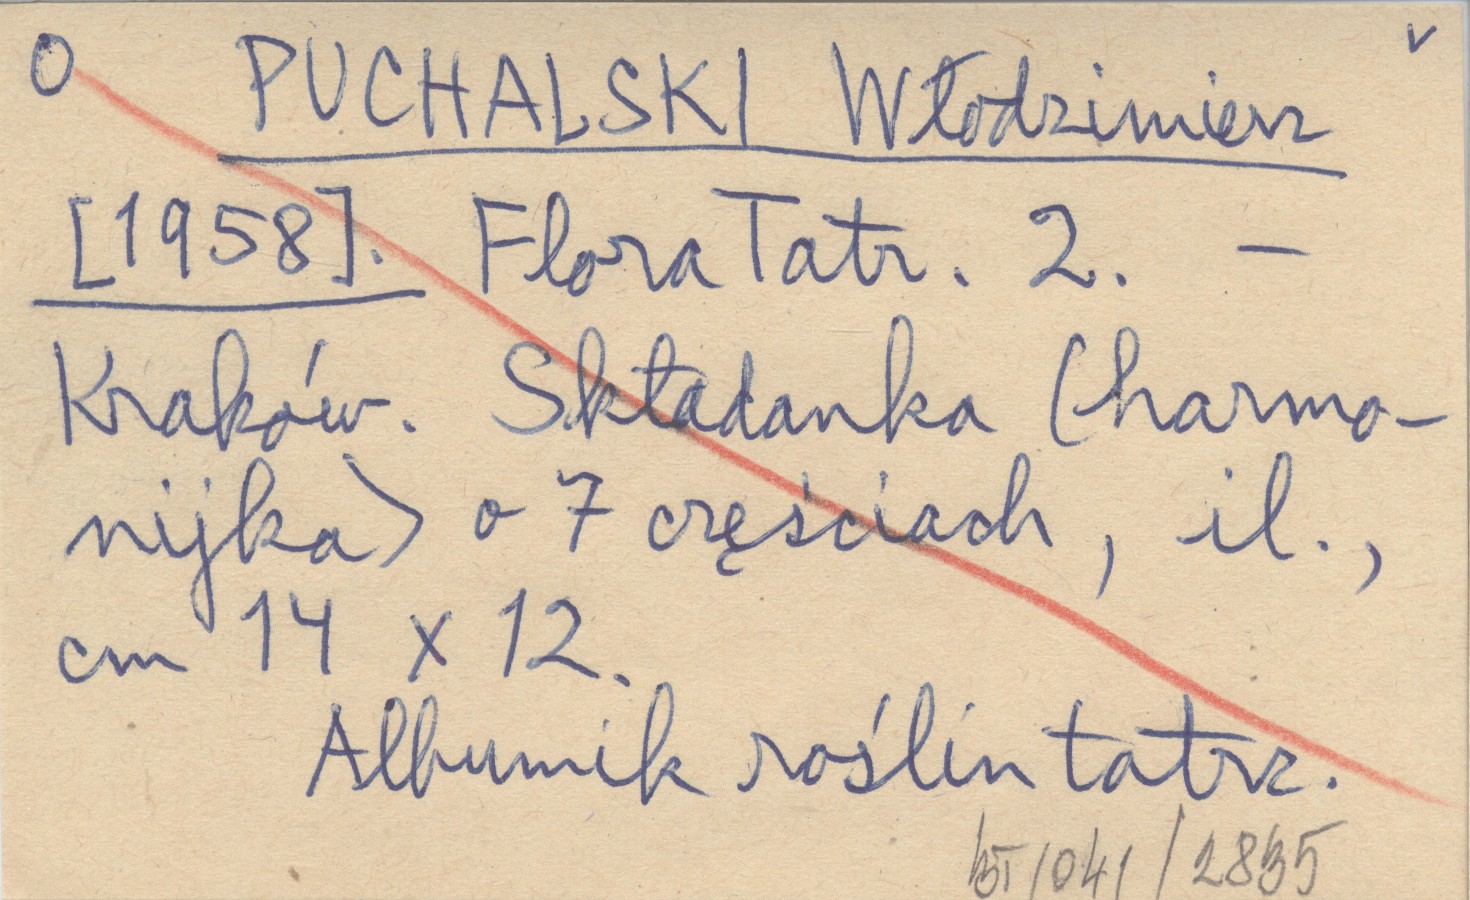 O PUCHALSKI Włodzimierz
[1958]. Flora Tatr. 2. –
Kraków. Składanka (harmo-
nijka) o 7 częściach, il.,
cm 14 x 12.
Albumik roślin tatrz.
/041/2835